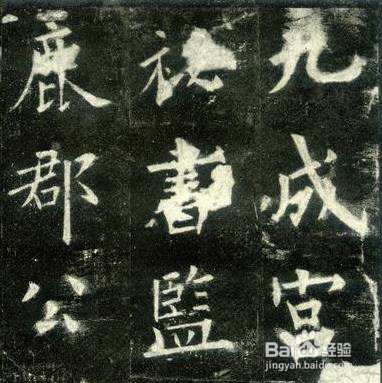 九成宮
秘書監
鹿郡公
Baidu 经验
jingyan.baidu.com